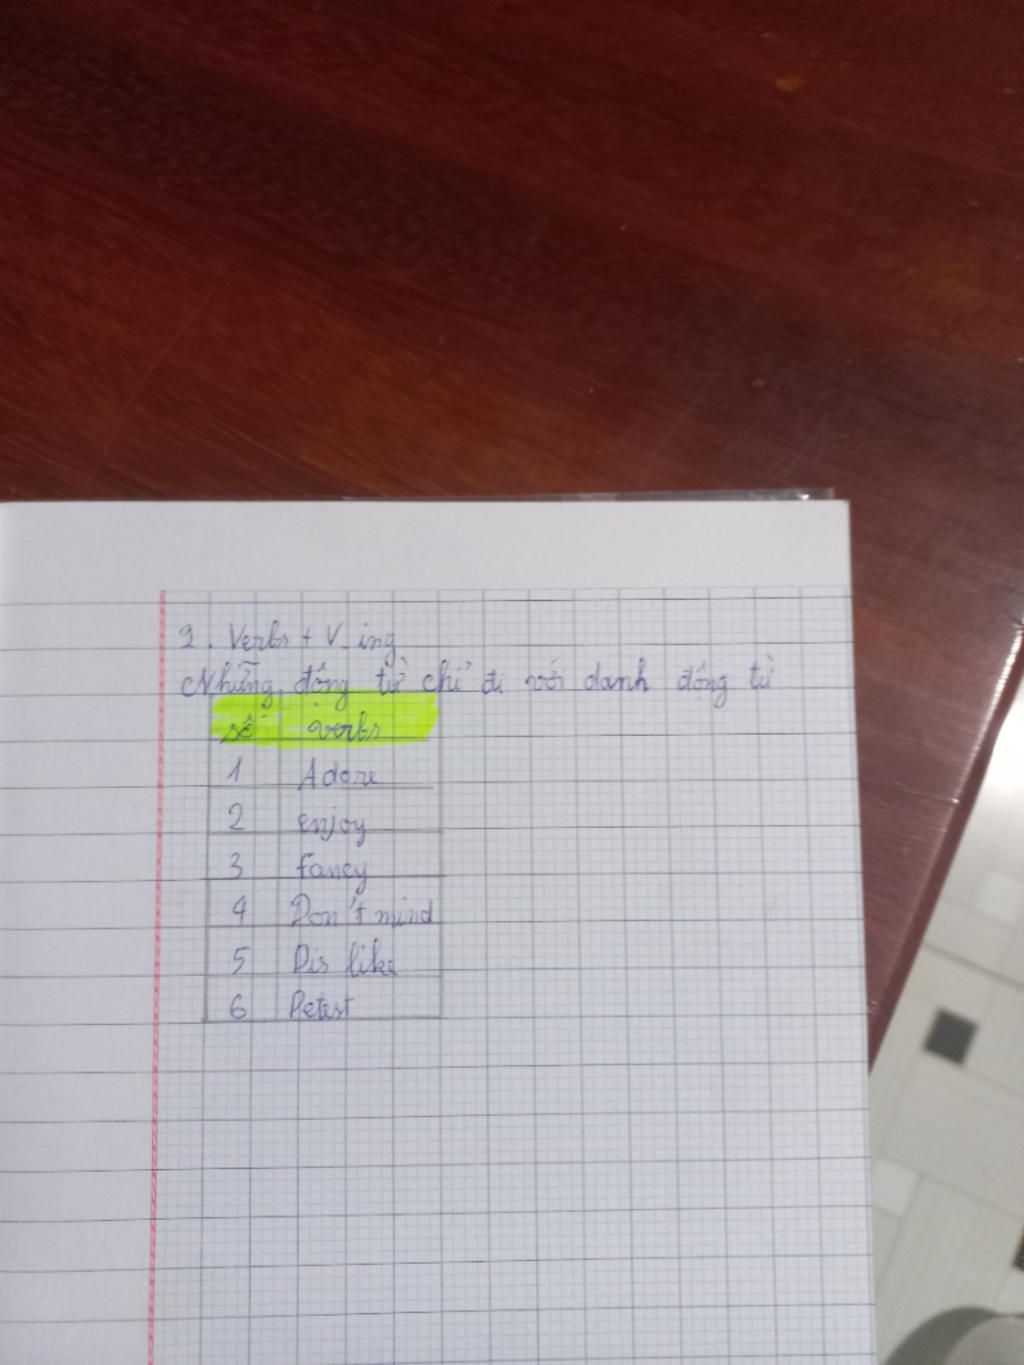 2. Verbs + V_ing
Những động từ chỉ đi với danh động từ
số verbs
1 Adore
2 enjoy
3 fancy
4 Don't mind
5 Dis like
6 Detest